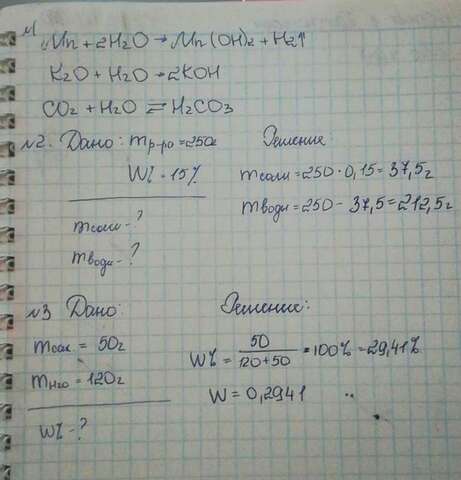 №1
Mn + 2H2O → Mn(OH)2 + H2↑
K2O + H2O → 2KOH
CO2 + H2O ⇌ H2CO3
№2. Дано: mр-ра = 250г
W% = 15%
mсоли - ?
mводы - ?
Решение:
mсоли = 250 · 0,15 = 37,5г
mводы = 250 - 37,5 = 212,5г
№3 Дано:
mсах. = 50г
mH2O = 120г
W% - ?
Решение:
W% = 50/(120+50) · 100% = 29,41%
W = 0,2941